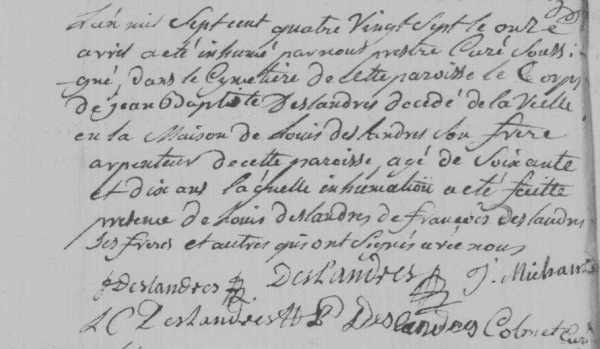 L'an mil Sept cent quatre Vingt Sept le onze
avril a eté inhumé par nous prestre Curé Soussi-
gné, dans le Cymetiere de cette paroisse le Corps
de jean Baptiste Deslandres decedé de la Veille
en la Maison de Louis deslandres son frere
arpenteur de cette paroisse, agé de Soixante
et dix ans laquelle inhumation a eté faitte
presence de Louis deslandres de françois deslandres
ses freres et autres qui ont Signés avec nous
Deslandres Deslandres J. Michau
LC Deslandres P Deslandres Colmet Curé